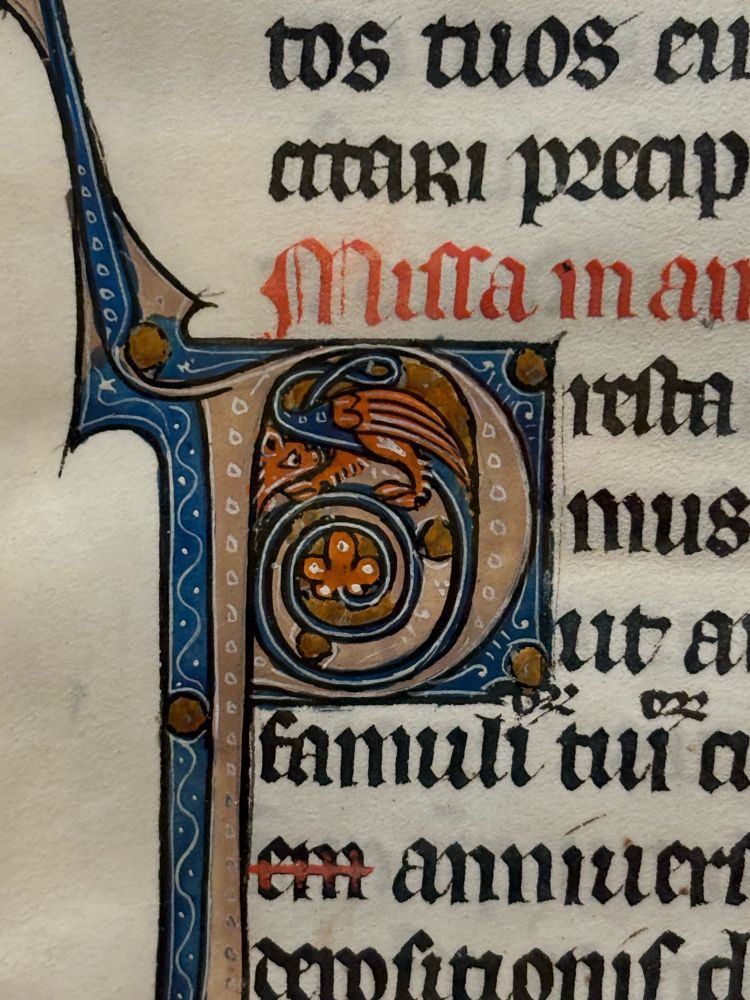 tos tuos eu
citari precip
Missa in an
Presta
mus
ut a
orũ orũ
famuli tui cu
em anniuers
depositionis d